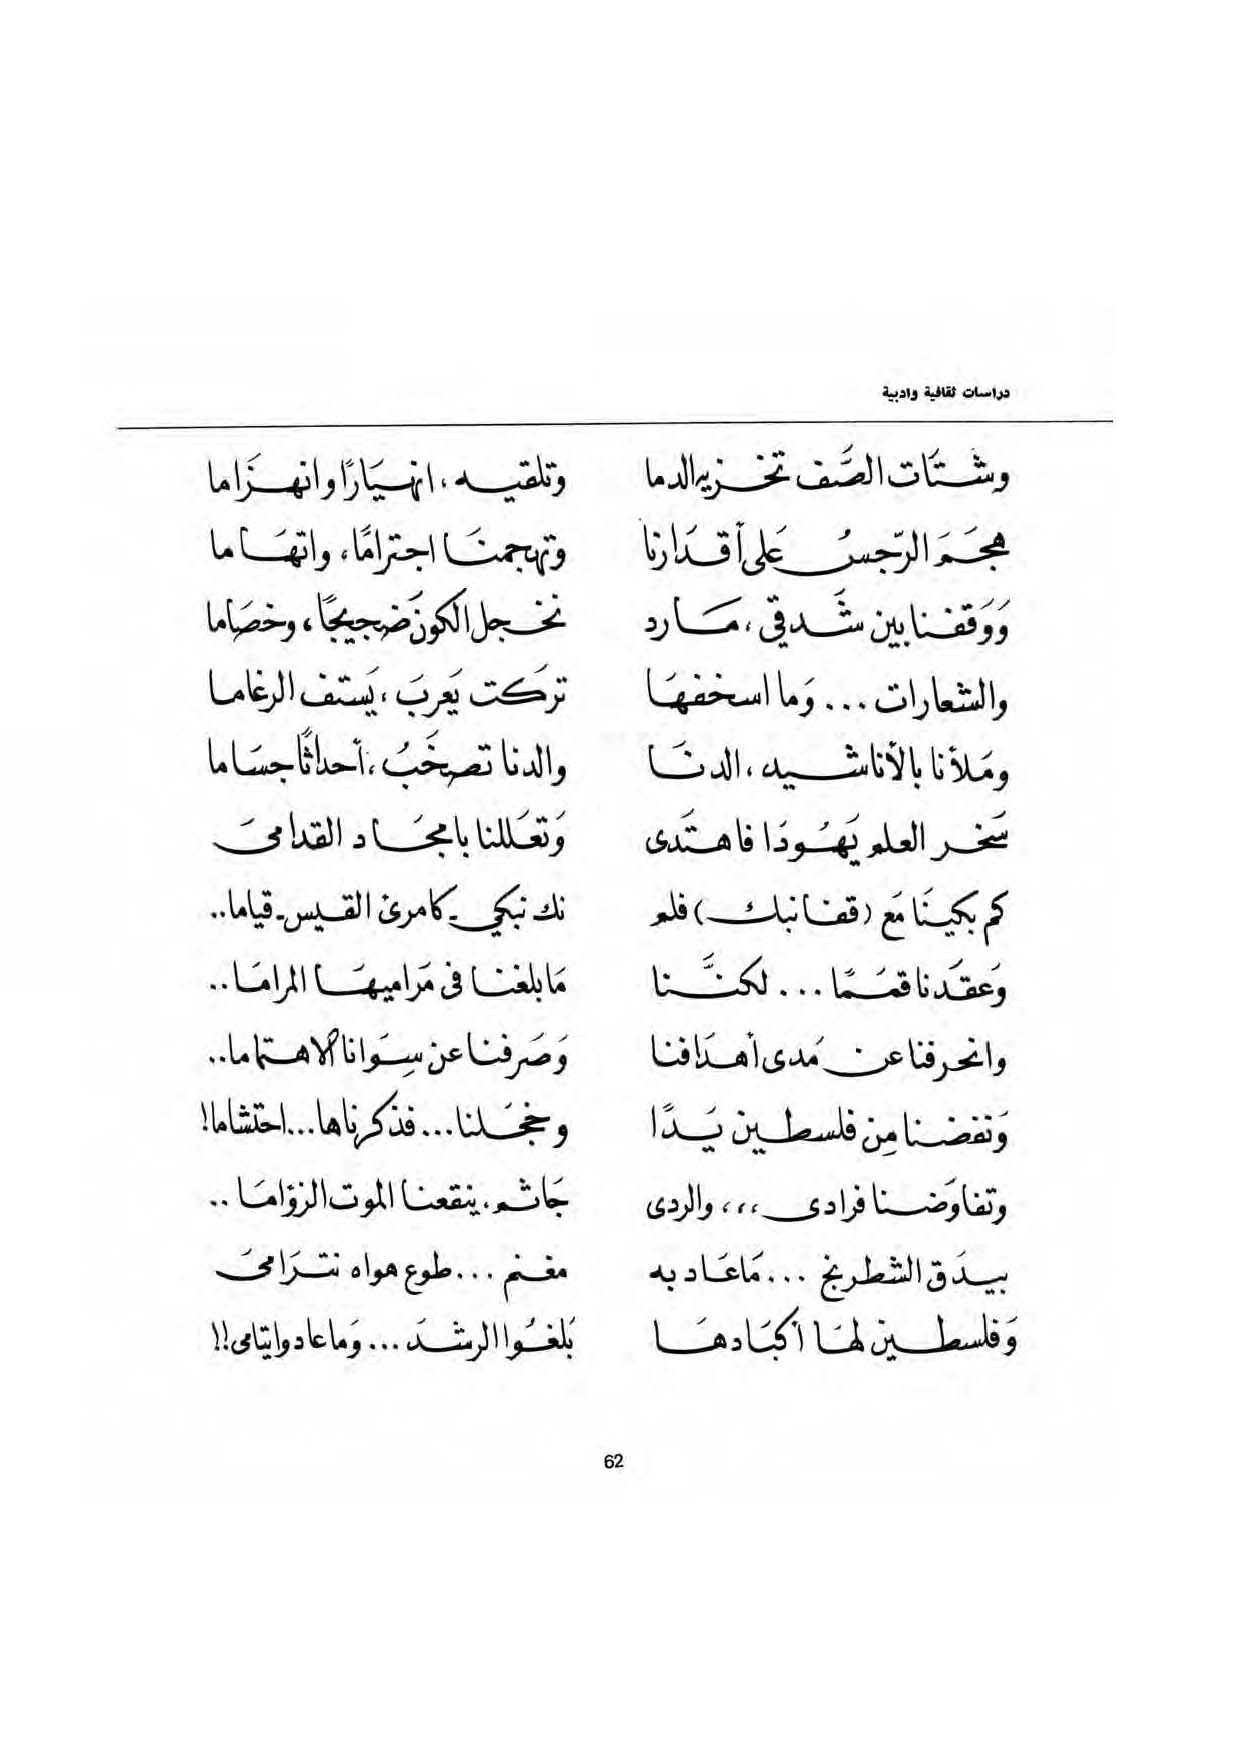 دراسات ثقافية وادبية
وشتَات الصَّف تخزيه الدما وتلقيه، انهيَارًا وانهزَاما
هجمَ الرّجسُ عَلى أقدَارنا وتهاجمنَا اجترامًا، واتهَاما
وَوَقفنا بين شَدقي، مَارد نخجل الكونَ ضجيجًا، وخصَاما
والشعارات ... وَما اسخفهَا تركت يَعربَ، يَستف الرغاما
ومَلأنا بالأناشيد، الدنَا والدنا تصخَبُ، أحداثًا جسَاما
سَخر العلم يَهُودَا فاهتَدى وَتعَللنا بامجَاد القدامىَ
كم بكينَا مَع (قفا نبك) فلم نك نبكي ـ كامرئ القيس ـ قياما..
وَعقَدنا قمَمًا ... لكنَّنا مَا بلغنا فى مَراميهَا المرامَا..
وانحرفنا عن مَدى أهدَافنا وَصَرفنا عن سِوَانا الاهتماما..
وَنفضنا مِن فلسطين يَدًا وخجَلنا... فذكرناها... احتشاما!
وتفاوَضنا فرادى ،،، والردى جَاثم، ينقعنا الموت الزؤامَا ..
بيدَق الشطرنج ... مَا عَاد به مغنم ... طوع هواه نترَامىَ
وَفلسطين لهَا أكبَادهَا بَلغُوا الرشدَ ... وَما عادوا يتامى!!
62